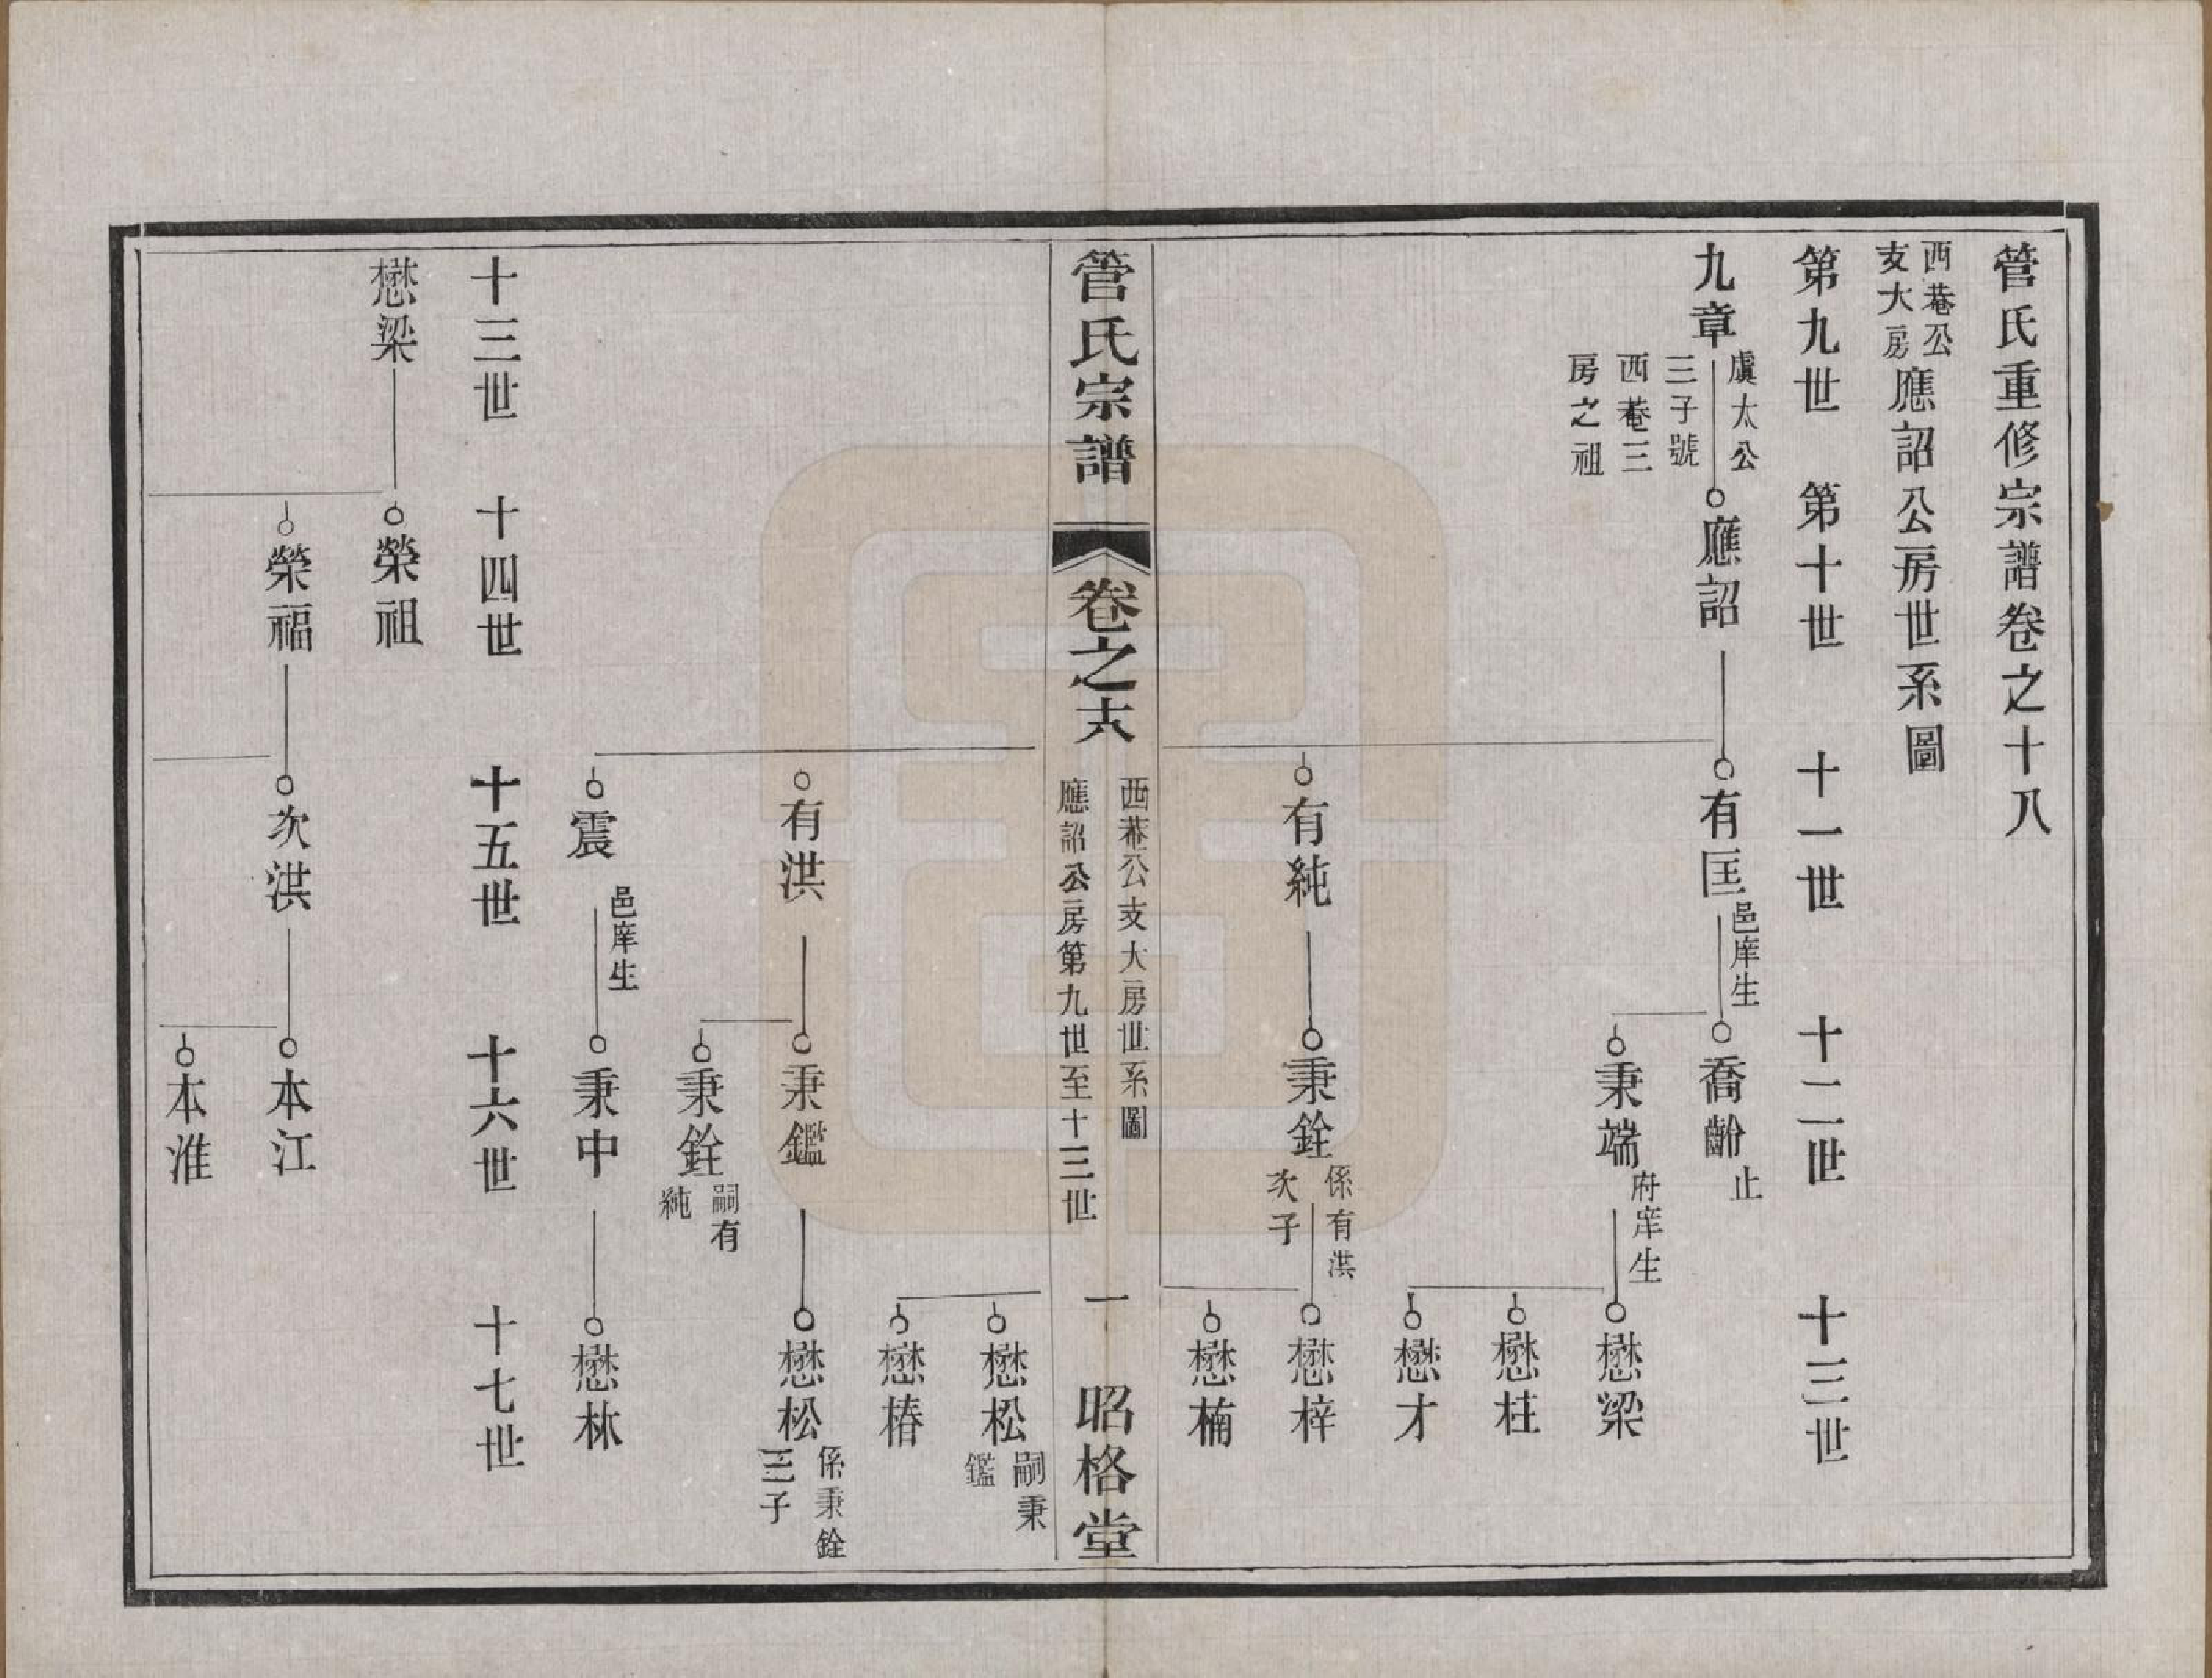 管氏重修宗譜卷之十八
西菴公支大房應詔公房世系圖
第九世 第十世 十一世 十二世 十三世
九章 虞太公三子號西菴三房之祖 應詔 有匡 邑庠生 喬齡 止 秉端 府庠生 懋梁
懋柱
懋才
有純 秉銓 係有洪次子 懋梓
懋楠
管氏宗譜 卷之十八 西菴公支大房世系圖 應詔公房第九世至十三世 一 昭格堂
懋松 嗣秉鑑
懋椿
有洪 秉鑑 懋松 係秉銓三子
秉銓 嗣有純
震 邑庠生 秉中 懋林
十三世 十四世 十五世 十六世 十七世
懋梁 榮祖
榮福 次洪 本江
本淮